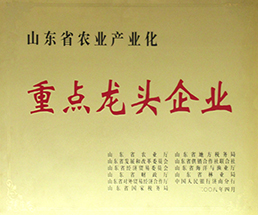 山东省农业产业化
重点龙头企业
山东省农业厅 山东省地方税务局
山东省发展和改革委员会 山东省供销合作社联合社
山东省经济贸易委员会 山东省海洋与渔业厅
山东省财政厅 山东省林业局
山东省对外贸易经济合作厅 中国人民银行济南分行
山东省国家税务局 二〇〇八年四月